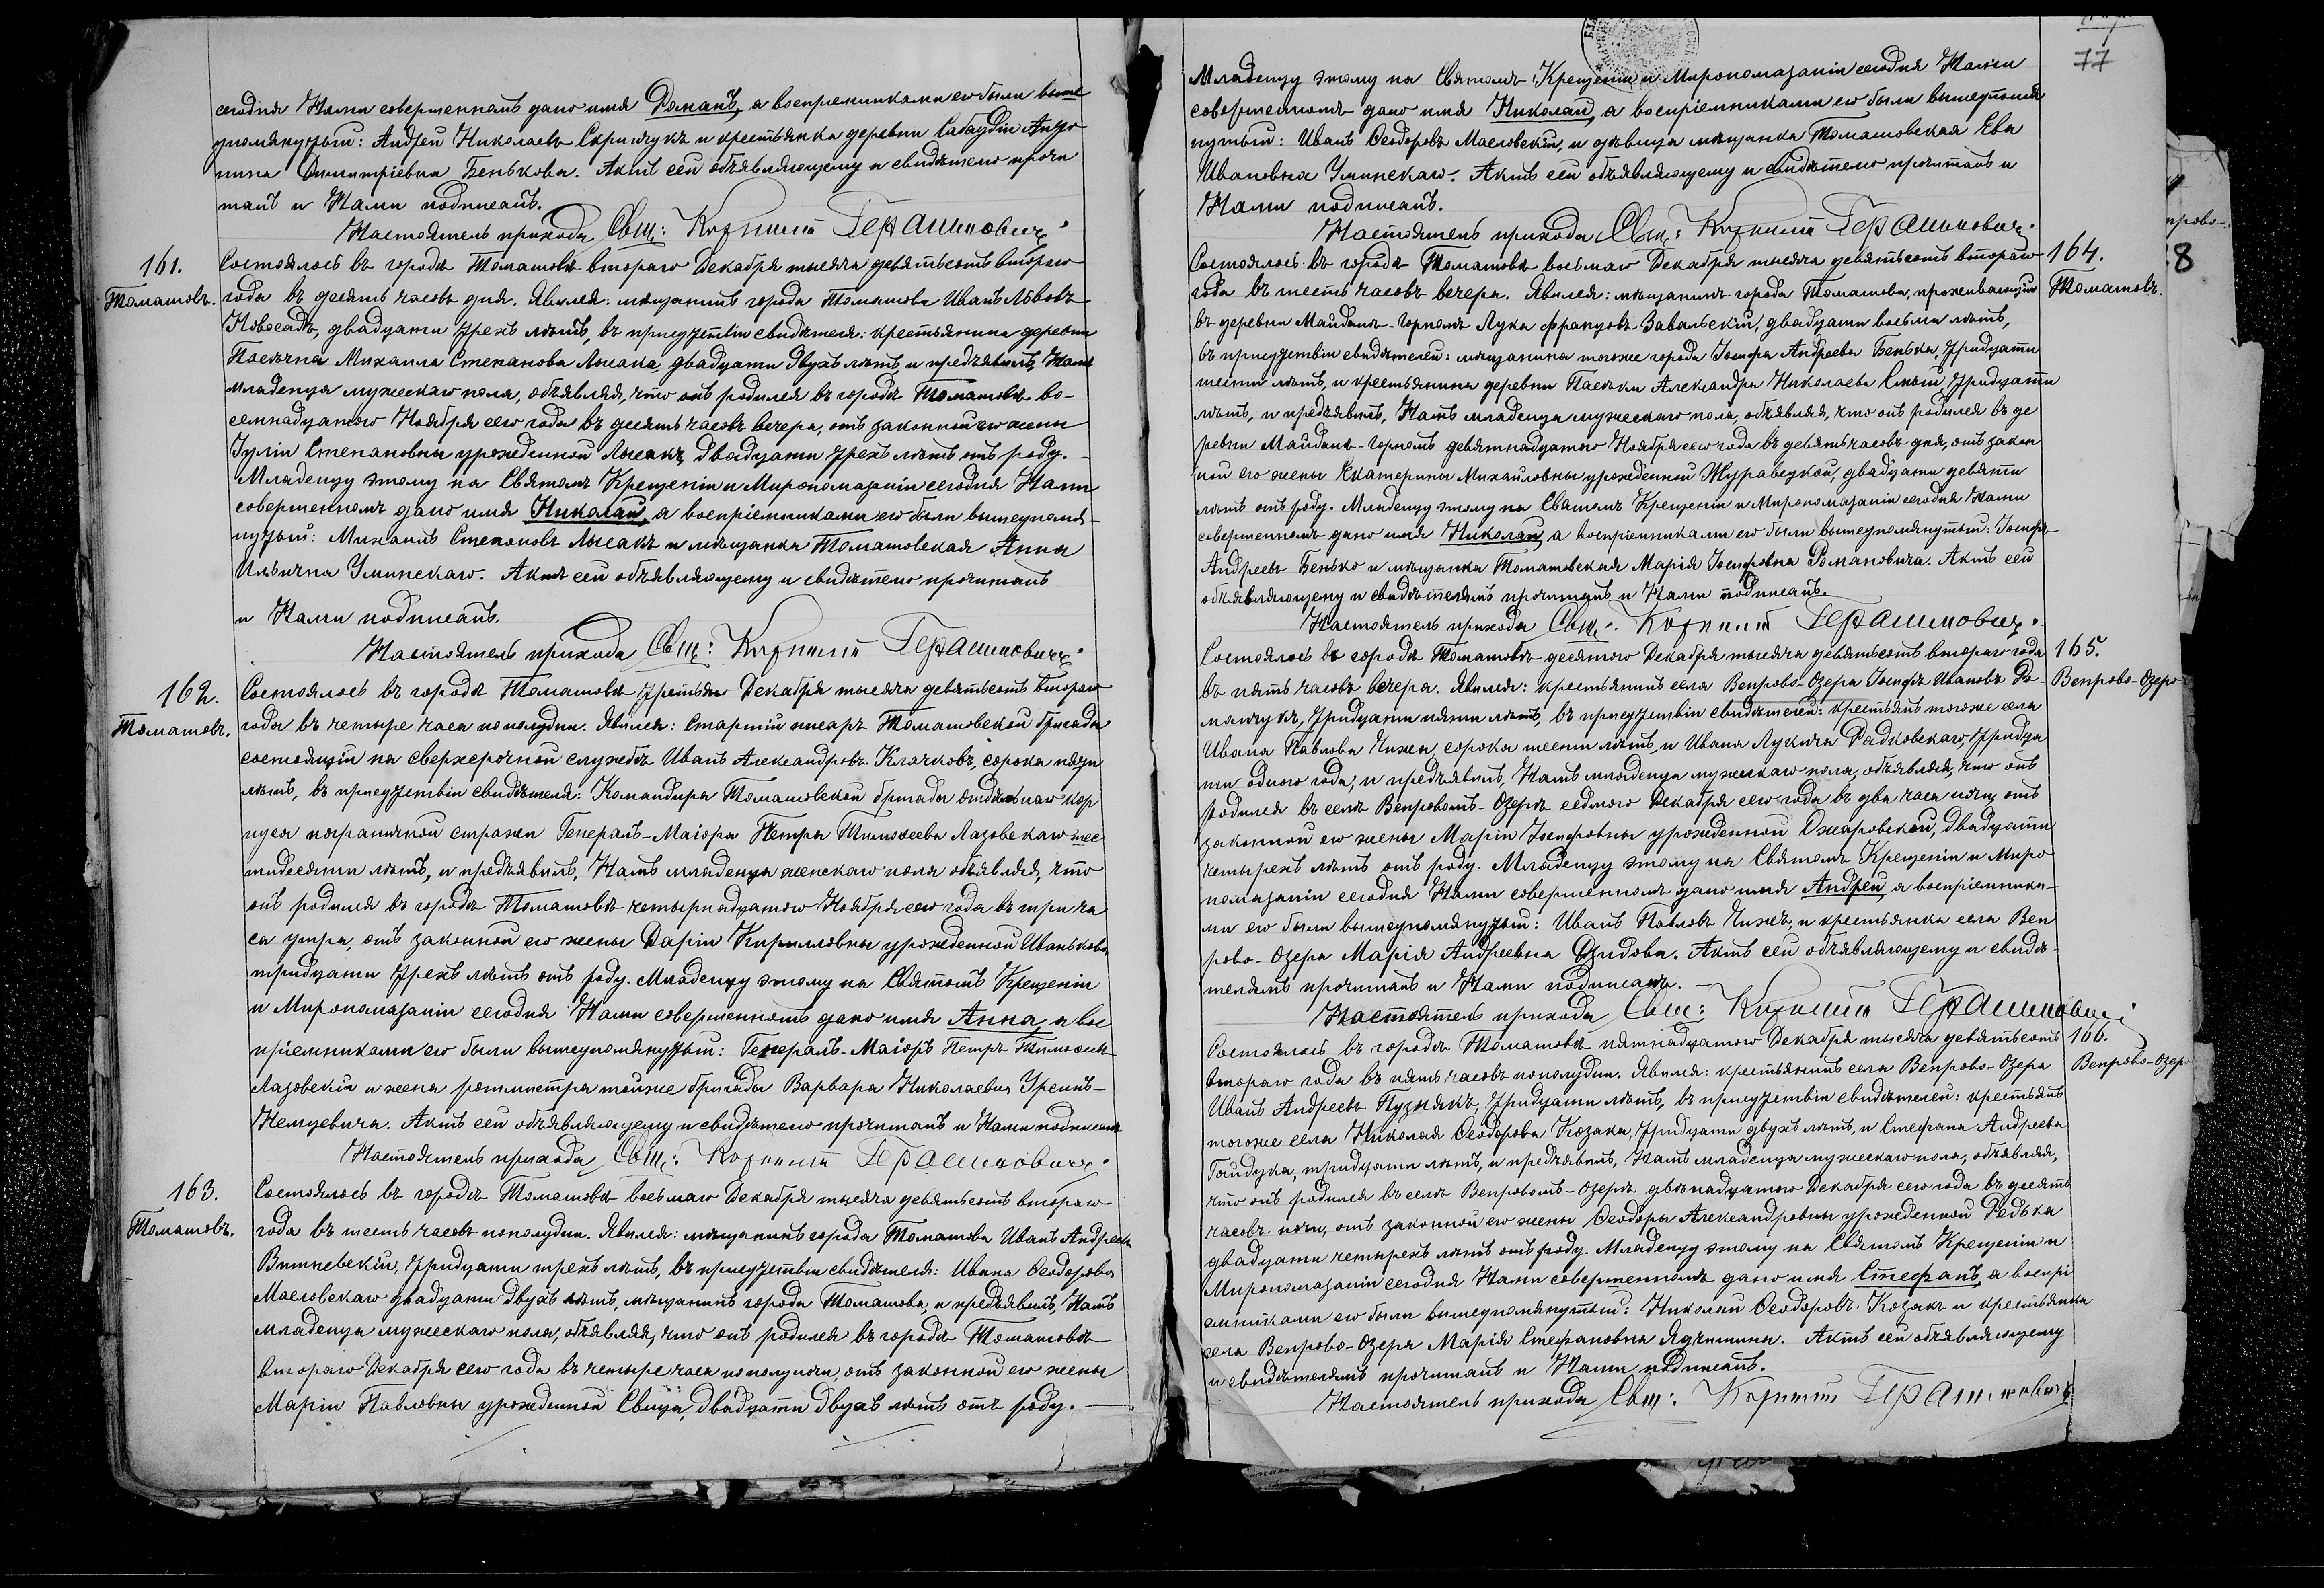 сегодня Нами совершенномъ дано имя Романъ, а воспреемниками его были выше
упомянутый: Андрей Николаевъ и крестьянка деревни Сабаудіи Анто
нина Димитріевна Бенькова. Актъ сей объявляющему и свидѣтелю прочи
танъ и Нами подписанъ.
Настоятель прихода Свщ: Корнилій Герашиновичъ.
161.
Томашовъ.
Состоялось въ городѣ Томашовѣ второго Декабря тысяча девятьсотъ второго
года въ десять часовъ дня. Явился: мѣщанинъ города Томашова Иванъ Львовъ
Новосадъ, двадцати трехъ лѣтъ, въ присутствіи свидѣтеля: крестьянина деревни
Пасѣчна Михаила Степанова Лысака, двадцати двухъ лѣтъ, и предъявилъ Намъ
младенца мужескаго пола, объявляя, что онъ родился въ городѣ Томашовѣ во-
семнадцатого Ноября сего года въ десять часовъ вечера, отъ законной его жены
Іуліи Степановны урожденной Лысакъ, двадцати трехъ лѣтъ отъ роду.
Младенцу этому на Святомъ Крещеніи и Миропомазаніи сегодня Нами
совершенномъ дано имя Николай, а воспріемниками его были вышеупомя-
нутый: Михаилъ Степановъ Лысакъ и мѣщанка Томашовская Анна
Ильична Уминскаго. Актъ сей объявляющему и свидѣтелю прочитанъ
и Нами подписанъ.
Настоятель прихода Свщ: Корнилій Герашиновичъ.
162.
Томашовъ.
Состоялось въ городѣ Томашовѣ третьяго Декабря тысяча девятьсотъ второго
года въ четыре часа пополудни. Явился: Старшій писарь Томашовской бригады
состоящій на сверхсрочной службѣ Иванъ Александровъ Клачковъ, сорока пяти
лѣтъ, въ присутствіи свидѣтеля: Командира Томашовской бригады отдѣльнаго кор
пуса пограничной стражи Генералъ-Маіора Петра Тимоѳеева Лазовскаго шес
тидесяти лѣтъ, и предъявилъ Намъ младенца женскаго пола объявляя, что
онъ родился въ городѣ Томашовѣ четырнадцатого Ноября сего года въ три ча
са утра, отъ законной его жены Даріи Кирилловны урожденной Иванькова
тридцати трехъ лѣтъ отъ роду. Младенцу этому на Святомъ Крещеніи
и Миропомазаніи сегодня Нами совершенномъ дано имя Анна, а вос
пріемниками его были вышеупомянутый: Генералъ-Маіоръ Петръ Тимоѳеевъ
Лазовскій и жена ротмистра тойже бригады Варвара Николаевна Урсинъ-
Немцевича. Актъ сей объявляющему и свидѣтелю прочитанъ и Нами подписанъ
Настоятель прихода Свщ: Корнилій Герашиновичъ.
163.
Томашовъ.
Состоялось въ городѣ Томашовѣ восьмаго Декабря тысяча девятьсотъ второго
года въ шесть часовъ пополудни. Явился: мѣщанинъ города Томашова Иванъ Андреевъ
Вишневскій, тридцати трехъ лѣтъ, въ присутствіи свидѣтеля: Ивана Ѳеодорова
Масловскаго двадцати двухъ лѣтъ, мѣщанинъ города Томашова, и предъявилъ Намъ
младенца мужескаго пола, объявляя, что онъ родился въ городѣ Томашовѣ
второго Декабря сего года въ четыре часа пополуночи, отъ законной его жены
Маріи Павловны урожденной Свища, двадцати двухъ лѣтъ отъ роду.
77
Младенцу этому на Святомъ Крещеніи и Миропомазаніи сегодня Нами
совершенномъ дано имя Николай, а воспріемниками его были вышеупомя
нутый: Иванъ Ѳеодоровъ Масловскій, и дѣвица мѣщанка Томашовская Ева
Ивановна Уминскаго. Актъ сей объявляющему и свидѣтелю прочитанъ и
Нами подписанъ.
Настоятель прихода Свщ: Корнилій Герашиновичъ.
164.
Томашовъ.
Состоялось въ городѣ Томашовѣ восьмаго Декабря тысяча девятьсотъ второго
года въ шесть часовъ вечера. Явился: мѣщанинъ города Томашова, проживающій
въ деревни Майданѣ-Горномъ Лука Францовъ Завальскій, двадцати восьми лѣтъ,
въ присутствіи свидѣтелей: мѣщанина тогоже города Іосифа Андреева Бенька, тридцати
шести лѣтъ, и крестьянина деревни Пасѣки Александра Николаева тридцати
лѣтъ, и предъявилъ Намъ младенца мужескаго пола, объявляя, что онъ родился въ де
ревни Майданѣ-Горномъ девятнадцатого Ноября сего года въ девять часовъ дня, отъ закон
ной его жены Екатерины Михайловны урожденной Журавецкой, двадцати девяти
лѣтъ отъ роду. Младенцу этому на Святомъ Крещеніи и Миропомазаніи сегодня Нами
совершенномъ дано имя Николай, а воспріемниками его были вышеупомянутый: Іосифъ
Андреевъ Бенько и мѣщанка Томашовская Марія Іосифовна Романовича. Актъ сей
объявляющему и свидѣтелямъ прочитанъ и Нами подписанъ.
Настоятель прихода Свщ: Корнилій Герашиновичъ.
165.
Вепрово-Озеро
Состоялось въ городѣ Томашовѣ десятого Декабря тысяча девятьсотъ второго года
въ пять часовъ вечера. Явился: крестьянинъ села Вепрово-Озера Іосифъ Ивановъ Ро-
манчукъ, тридцати пяти лѣтъ, въ присутствіи свидѣтелей: крестьянъ тогоже села
Ивана Павлова Чижа, сорока шести лѣтъ, и Ивана Лукича Радковскаго, тридца
ти одного года, и предъявилъ Намъ младенца мужескаго пола, объявляя, что онъ
родился въ селѣ Вепровомъ-Озерѣ седмого Декабря сего года въ два часа ночи, отъ
законной его жены Маріи Іосифовны урожденной Ожаровской, двадцати
четырехъ лѣтъ отъ роду. Младенцу этому на Святомъ Крещеніи и Миро
помазаніи сегодня Нами совершенномъ дано имя Андрей, а воспріемника-
ми его были вышеупомянутый: Иванъ Павловъ Чижъ, и крестьянка села Веп
рово-Озера Марія Андреевна Дзидова. Актъ сей объявляющему и свидѣ-
телямъ прочитанъ и Нами подписанъ.
Настоятель прихода Свщ: Корнилій Герашиновичъ
166.
Вепрово-Озеро
Состоялось въ городѣ Томашовѣ пятнадцатого Декабря тысяча девятьсотъ
второго года въ пять часовъ пополудни. Явился: крестьянинъ села Вепрово-Озера
Иванъ Андреевъ Пузнякъ, тридцати лѣтъ, въ присутствіи свидѣтелей: крестьянъ
тогоже села Николая Ѳеодорова Козака, тридцати двухъ лѣтъ, и Стефана Андреева
Гайдука, тридцати лѣтъ, и предъявилъ Намъ младенца мужескаго пола, объявляя,
что онъ родился въ селѣ Вепровомъ-Озерѣ двѣнадцатого Декабря сего года въ десять
часовъ ночи, отъ законной его жены Ѳеодоры Александровны урожденной Редька
двадцати четырехъ лѣтъ отъ роду. Младенцу этому на Святомъ Крещеніи и
Миропомазаніи сегодня Нами совершенномъ дано имя Стефанъ, а воспрі
емниками его были вышеупомянутый: Николай Ѳеодоровъ Козакъ и крестьянка
села Вепрово-Озера Марія Стефановна Ядчишина. Актъ сей объявляющему
и свидѣтелямъ прочитанъ и Нами подписанъ.
Настоятель прихода Свщ: Корнилій Герашиновичъ